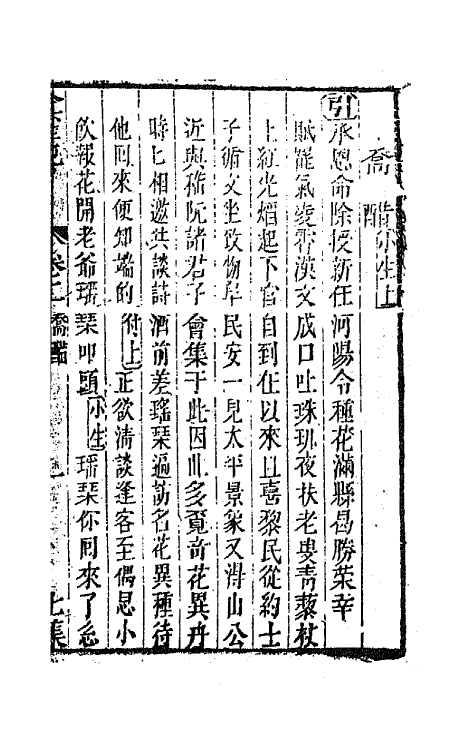 喬醋 小生上
引 承恩命除授新任河陽令種花滿縣曷勝榮幸
賦罷氣凌霄漢文成口吐珠璣夜扶老叟青藜杖
上紅光熖起下官自到任以來且喜黎民從約士
子循文坐致物阜民安一見太平景象又得山公
近與嵇阮諸君子會集于此因此多覓奇花異卉
時匕相邀共談詩酒前差瑤琴遍訪名花異種待
他囘來便知端的 付上 正欲清談逢客至偶思小
飲報花開老爺瑤琴叩頭 小生 瑤琴你囘來了怎
卷二 喬醋 七集